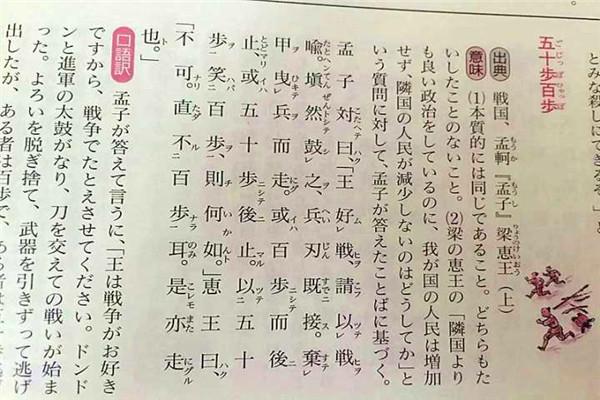 とみな殺しにできるぞ。」と
五十歩百歩
出典 戦国、孟軻『孟子』梁恵王(上)
意味 (1)本質的には同じであること。どちらもた
いしたことのないこと。(2)梁の恵王の「隣国より
も良い政治をしているのに、我が国の人民は増加
せず、隣国の人民が減少しないのはどうしてか」と
いう質問に対して、孟子が答えたことばに基づく。
孟子対曰、「王好戦。請以戦
喩。塡然鼓之、兵刃既接。棄
甲曳兵而走。或百歩而後
止、或五十歩後止。以五十
歩笑百歩、則何如。」恵王曰、
「不可。直不百歩耳。是亦走
也。」
口語訳 孟子が答えて言うに、「王は戦争がお好き
ですから、戦争でたとえさせてください。ドンド
ンと進軍の太鼓がなり、刀を交えての戦いが始ま
った。よろいを脱ぎ捨て、武器を引きずって逃げ
出したが、ある者は百歩で、ある者は五十歩